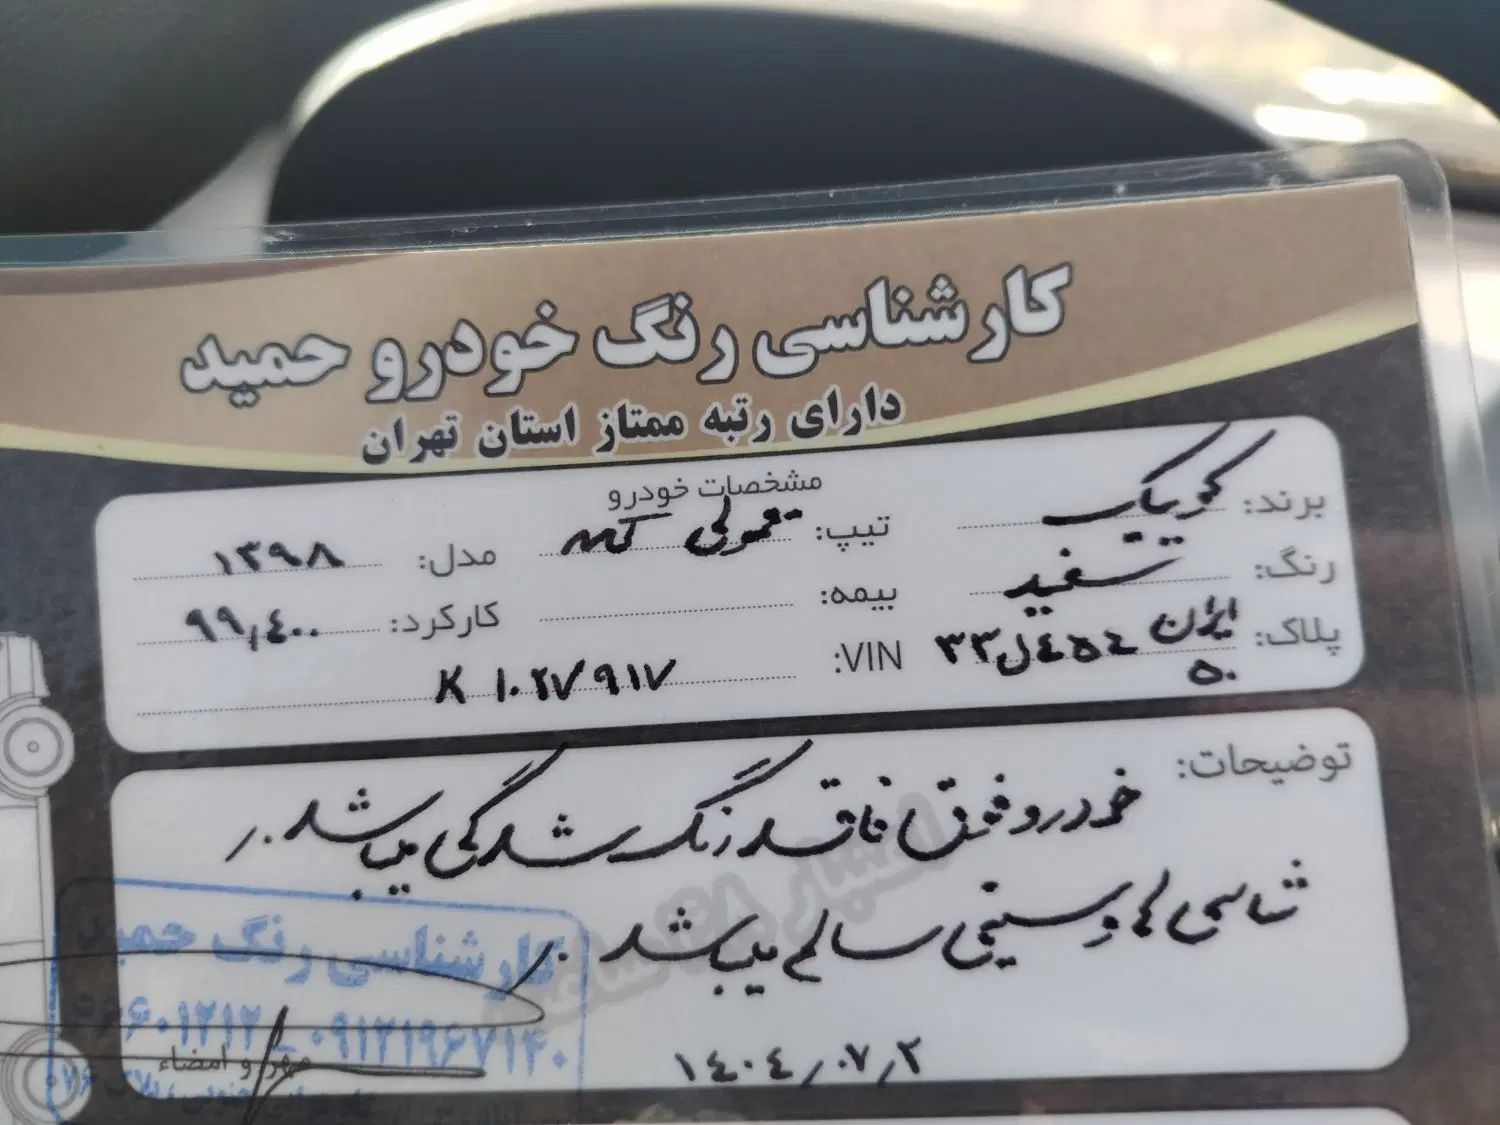 کارشناسی رنگ خودرو حمید
دارای رتبه ممتاز استان تهران
مشخصات خودرو
برند: کوییک تیپ: معمولی مدل: ۱۳۹۸
رنگ: سفید بیمه: کارکرد: ۹۹,۴۰۰
پلاک: ایران ۵۰ ۳۳ل۴۵۴ VIN: K ۱۰۲۷۹۱۷
توضیحات:
خودرو فوق فاقد رنگ شدگی میباشد.
شاسی ها و ستونی سالم میباشد.
اعتبار ۴۸ ساعت
۱۴۰۴/۰۷/۲
کارشناسی رنگ حمید
۶۶۰۱۲۱۲ - ۰۹۱۲۱۹۶۷۱۴۰
مهر و امضاء